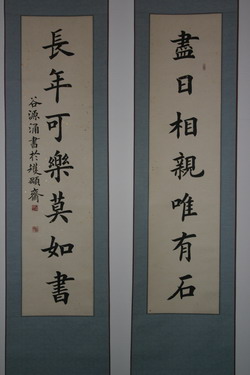 盡日相親唯有石
長年可樂莫如書
谷源涌書於矱頤齋